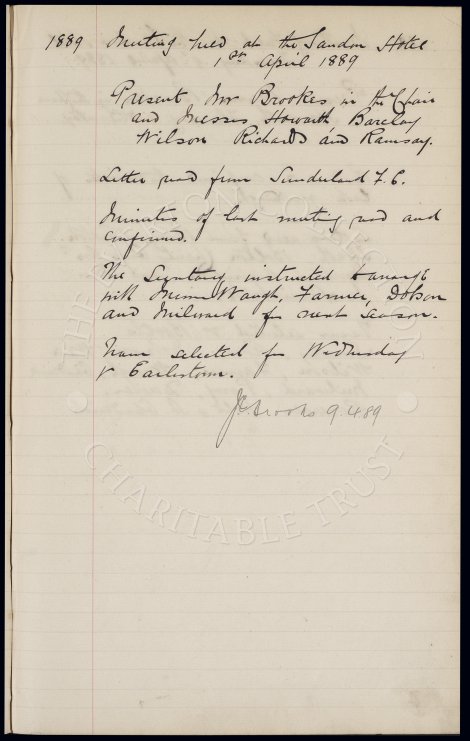 1889 Meeting held at the Sandon Hotel
1st April 1889
Present Mr Brookes in the Chair
and Messrs Howarth Barclay
Wilson Richards and Ramsay.
Letter read from Sunderland F.C.
Minutes of last meeting read and
confirmed.
The Secretary instructed to arrange
with Waugh, Farmer, Dobson
and Milward for next season.
Team selected for Wednesday
v Earlestown.
9.4.89
THE COLLECTION
CHARITABLE TRUST